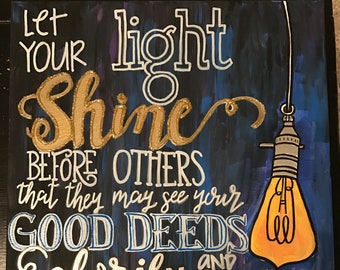 LET
YOUR light
Shine
BEFORE OTHERS
that they may see your
GOOD DEEDS
AND